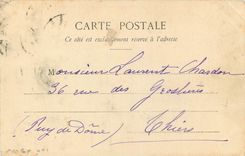 CARTE POSTALE
Ce côté est exclusivement réservé à l'adresse
Monsieur Laurent Chardon
36 rue des Grosliers
(Puy de Dôme) Thiers